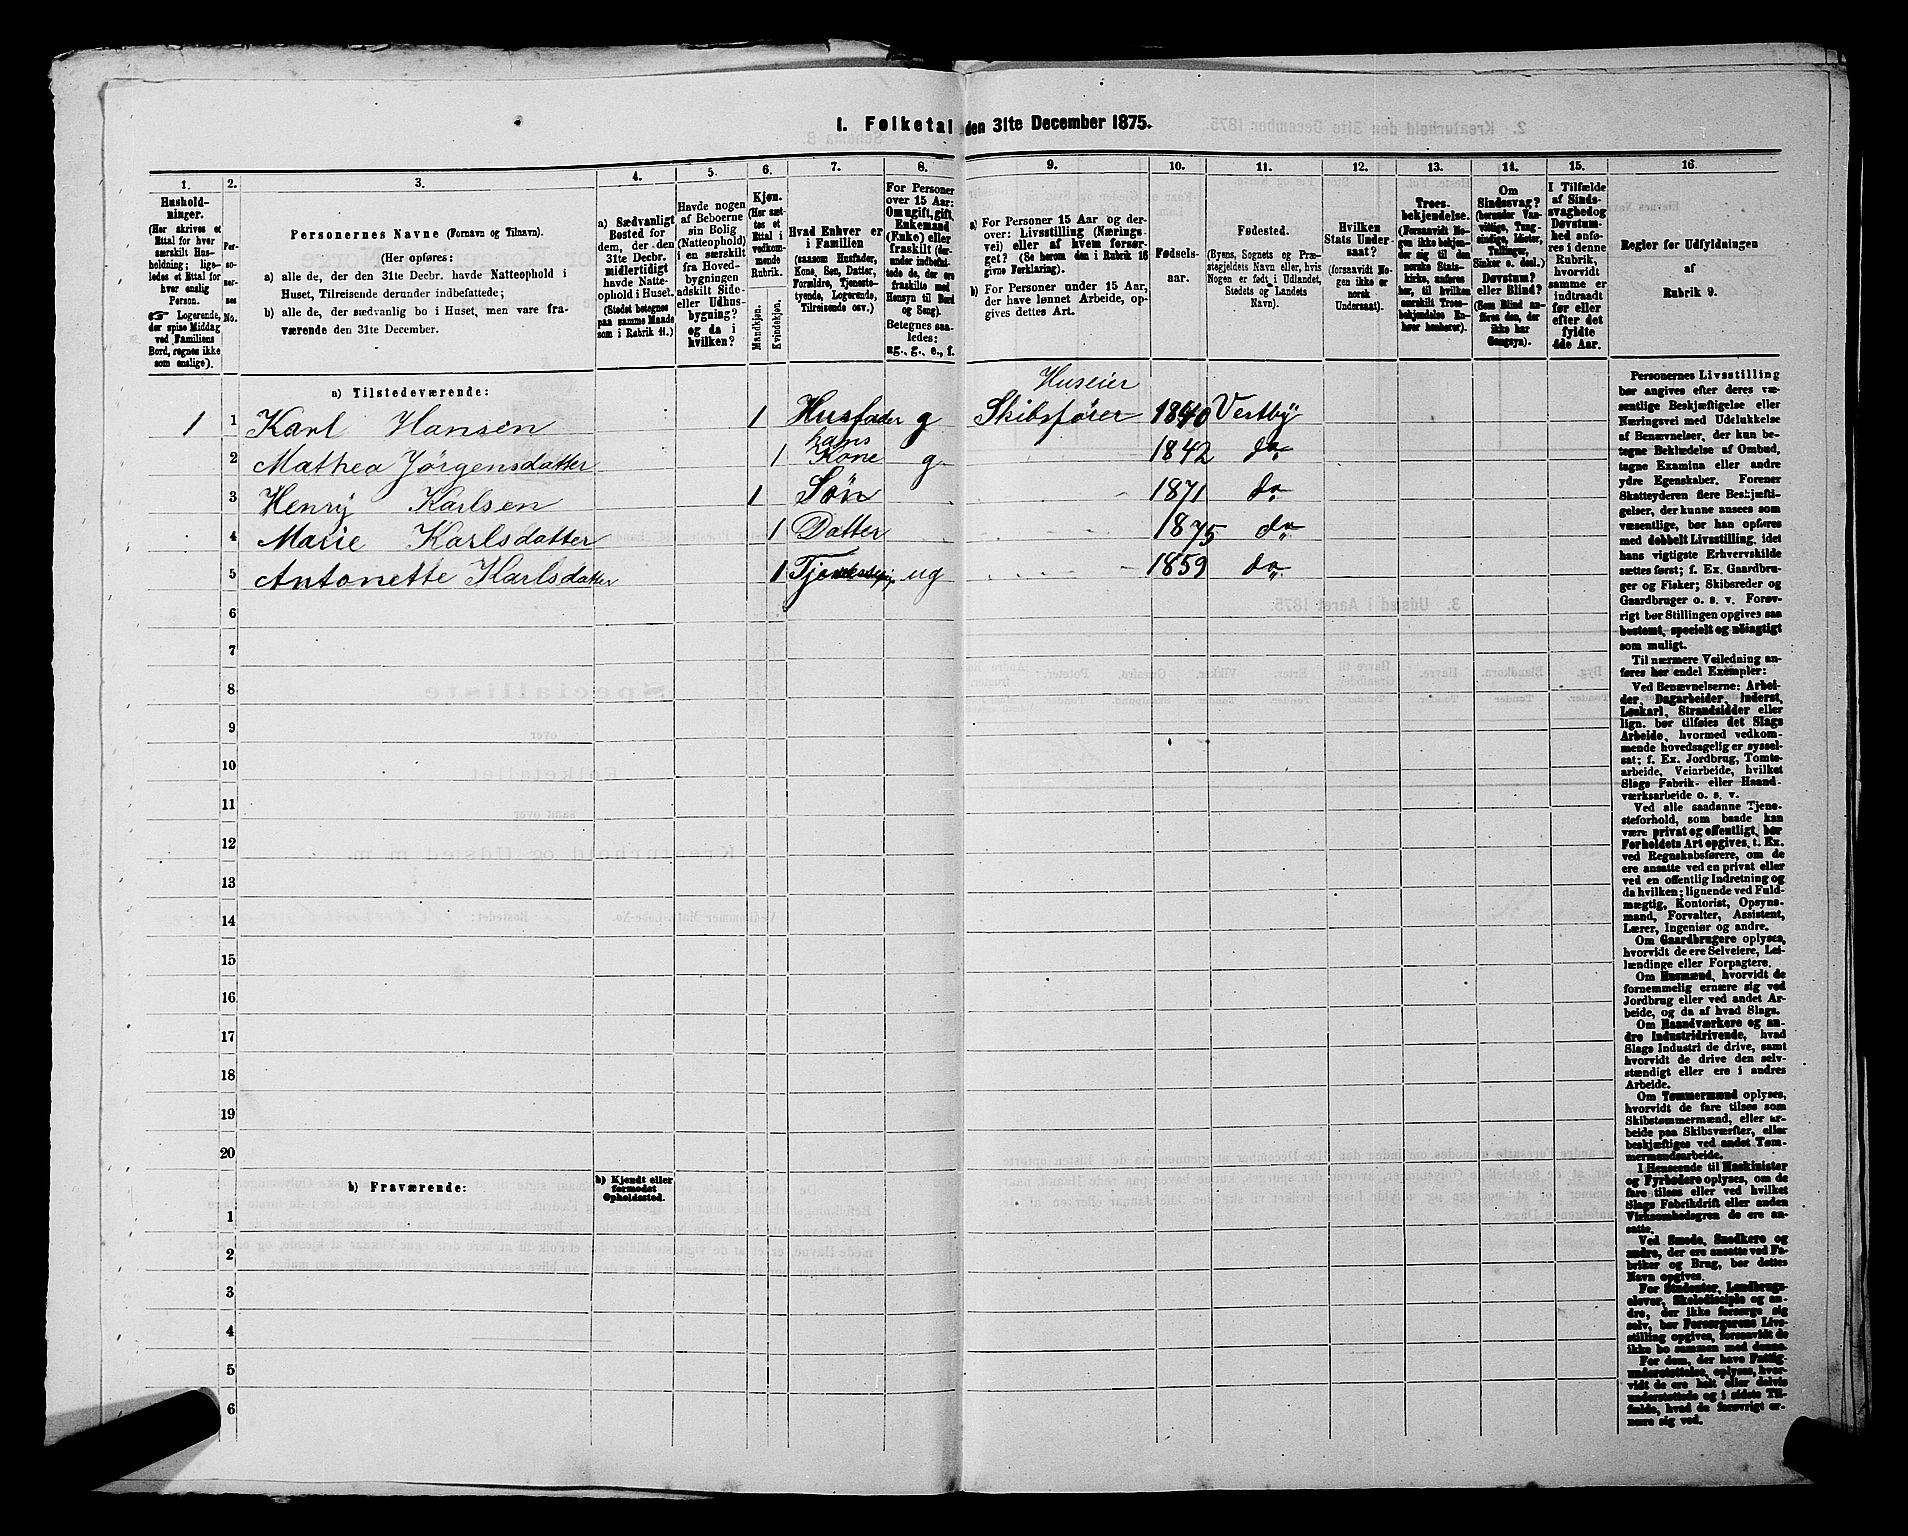 1. Folketal den 31te December 1875.
1.
Hushold-
ninger.
(Her skrives et
Ettal for hver
særskilt Hus-
holdning; lige-
ledes et Ettal for
hver enslig
Person.
☛ Logerende,
der spise Middag
ved Familiens
Bord, regnes ikke
som enslige).
2.
Per-
so-
ner-
nes
No.
3.
Personernes Navne (Fornavn og Tilnavn).
(Her opføres:
a) alle de, der den 31te Decbr. havde Natteophold i
Huset, Tilreisende derunder indbefattede;
b) alle de, der sædvanlig bo i Huset, men vare fra-
værende den 31te December.
4.
a) Sædvanligt
Bosted for
dem, der den
31te Decbr.
midlertidigt
havde Natte-
ophold i Huset.
(Stedet betegnes
paa samme Maade
som i Rubrik 11.)
5.
Havde nogen
af Beboerne
sin Bolig
(Natteophold)
i en særskilt
fra Hoved-
bygningen
adskilt Side-
eller Udhus-
bygning?
og da i
hvilken?
6.
Kjøn.
(Her sæt-
tes et
Ettal i
vedkom-
mende
Rubrik.
Mandkjøn.
Kvindekjøn.
7.
Hvad Enhver er
i Familien
(saasom Husfader,
Kone, Søn, Datter,
Forældre, Tjeneste-
tyende, Logerende,
Tilreisende osv.)
8.
For Personer
over 15 Aar:
Om ugift, gift,
Enkemand
(Enke) eller
fraskilt (der-
under indbefat-
tede de, der ere
fraskilte med
Hensyn til Bord
og Seng).
Betegnes saa-
ledes:
ug., g., e., f.
9.
a) For Personer 15 Aar og der-
over: Livsstilling (Nærings-
vei) eller af hvem forsør-
get? (Se herom den i Rubrik 16
givne Forklaring).
b) For Personer under 15 Aar,
der have lønnet Arbeide, op-
gives dettes Art.
10.
Fødsels-
aar.
11.
Fødested.
(Byens, Sognets og Præ-
stegjeldets Navn eller, hvis
Nogen er født i Udlandet,
Stedets og Landets
Navn).
12.
Hvilken
Stats Under-
saat?
(forsaavidt No-
gen ikke er
norsk
Undersaat).
13.
Troes-
bekjendelse.
(Forsaavidt No-
gen ikke bekjen-
der sig til den
norske Stats-
kirke, anføres
her, til hvilken
særskilt Troes-
bekjendelse En-
hver henhører).
14.
Om
Sindssvag?
(herunder Van-
vittige, Tung-
sindige, Idioter,
Tullinger,
Sinker o. desl.)
Døvstum?
eller Blind?
(Som Blind an-
føres den, der
ikke har
Gangsyn).
15.
I Tilfælde
af Sinds-
svaghed og
Døvstum-
hed anfø-
res i denne
Rubrik,
hvorvidt
samme er
indtraadt
før eller
efter det
fyldte
4de Aar.
16
Regler for Udfyldningen
af
Rubrik 9.
a) Tilstedeværende:
Huseier
1 1 Karl Hansen 1 Husfader g Skibsfører 1840 Vestby
2 Mathea Jørgensdatter 1 hans Kone g 1842 do
3 Henry Karlsen 1 Søn 1871 do
4 Marie Karlsdatter 1 Datter 1875 do
5 Antonette Karlsdatter 1 ug 1859 do
6
7
8
9
10
11
12
13
14
15
16
17
18
19
20
b) Fraværende:
b) Kjendt eller
formodet
Opholdssted.
1
2
3
4
5
6
Personernes Livsstilling
bør angives efter deres væ-
sentlige Beskjæftigelse eller
Næringsvei med Udelukkelse
af Benævnelser, der kun be-
tegne Beklædelse af Ombud,
tagne Examina eller andre
ydre Egenskaber. Forener
Skatteyderen flere Beskjæfti-
gelser, der kunne ansees som
væsentlige, bør han opføres
med dobbelt Livsstilling, idet
hans vigtigste Erhvervskilde
sættes først; f. Ex. Gaardbru-
ger og Fisker; Skibsreder og
Gaardbruger o. s. v. Forøv-
rigt bør Stillingen opgives saa
bestemt, specielt og nøiagtigt
som muligt.
Til nærmere Veiledning an-
føres her endel Exempler:
Ved Benævnelserne: Arbei-
der, Dagarbeider, Inderst,
Løskarl, Strandsidder eller
lign. bør tilføies det Slags
Arbeide, hvormed vedkom-
mende hovedsagelig er syssel-
sat; f. Ex. Jordbrug, Tomte-
arbeide, Veiarbeide, hvilket
Slags Fabrik- eller Haand-
værksarbeide o. s. v.
Ved alle saadanne Tjene-
steforhold, som baade kan
være privat og offentligt, bør
Forholdets Art opgives, f. Ex.
ved Regnskabsførere, om de
ere ansatte ved en privat eller
ved en offentlig Indretning og
da hvilken; lignende ved Fuld-
mægtig, Kontorist, Opsyns-
mand, Forvalter, Assistent,
Lærer, Ingeniør og andre.
Om Gaardbrugere oplyses,
hvorvidt de ere Selveiere, Lei-
lændinge eller Forpagtere.
Om Husmænd, hvorvidt de
fornemmelig ernære sig ved
Jordbrug eller ved andet Ar-
beide, og da af hvad Slags.
Om Haandværkere og an-
dre Industridrivende, hvad
Slags Industri de drive, samt
hvorvidt de drive den selv-
stændigt eller ere i andres
Arbeide.
Om Tømmermænd oplyses,
hvorvidt de fare tilsøs som
Skibstømmermænd, eller ar-
beide paa Skibsværfter, eller
beskjæftiges ved andet Tøm-
mermandsarbeide.
I Henseende til Maskinister
og Fyrbødere oplyses, om de
fare tilsøs eller ved hvilket
Slags Fabrikdrift eller anden
Virksomhedsgren de ere an-
satte.
Ved Smede, Snedkere og
andre, der ere ansatte ved Fa-
briker og Brug, bør dettes
Navn opgives.
For Studenter, Landbrugs-
elever, Skoledisciple og an-
dre, der ikke forsørge sig
selv, bør Forsørgerens Livs-
stilling opgives, forsaavidt de
ikke bo sammen med denne.
For dem, der have Fattig-
understøttelse, oplyses, hvor-
vidt de ere helt eller delvis
understøttede og i sidste Til-
fælde, hvad de forøvrigt er-
nære sig ved.